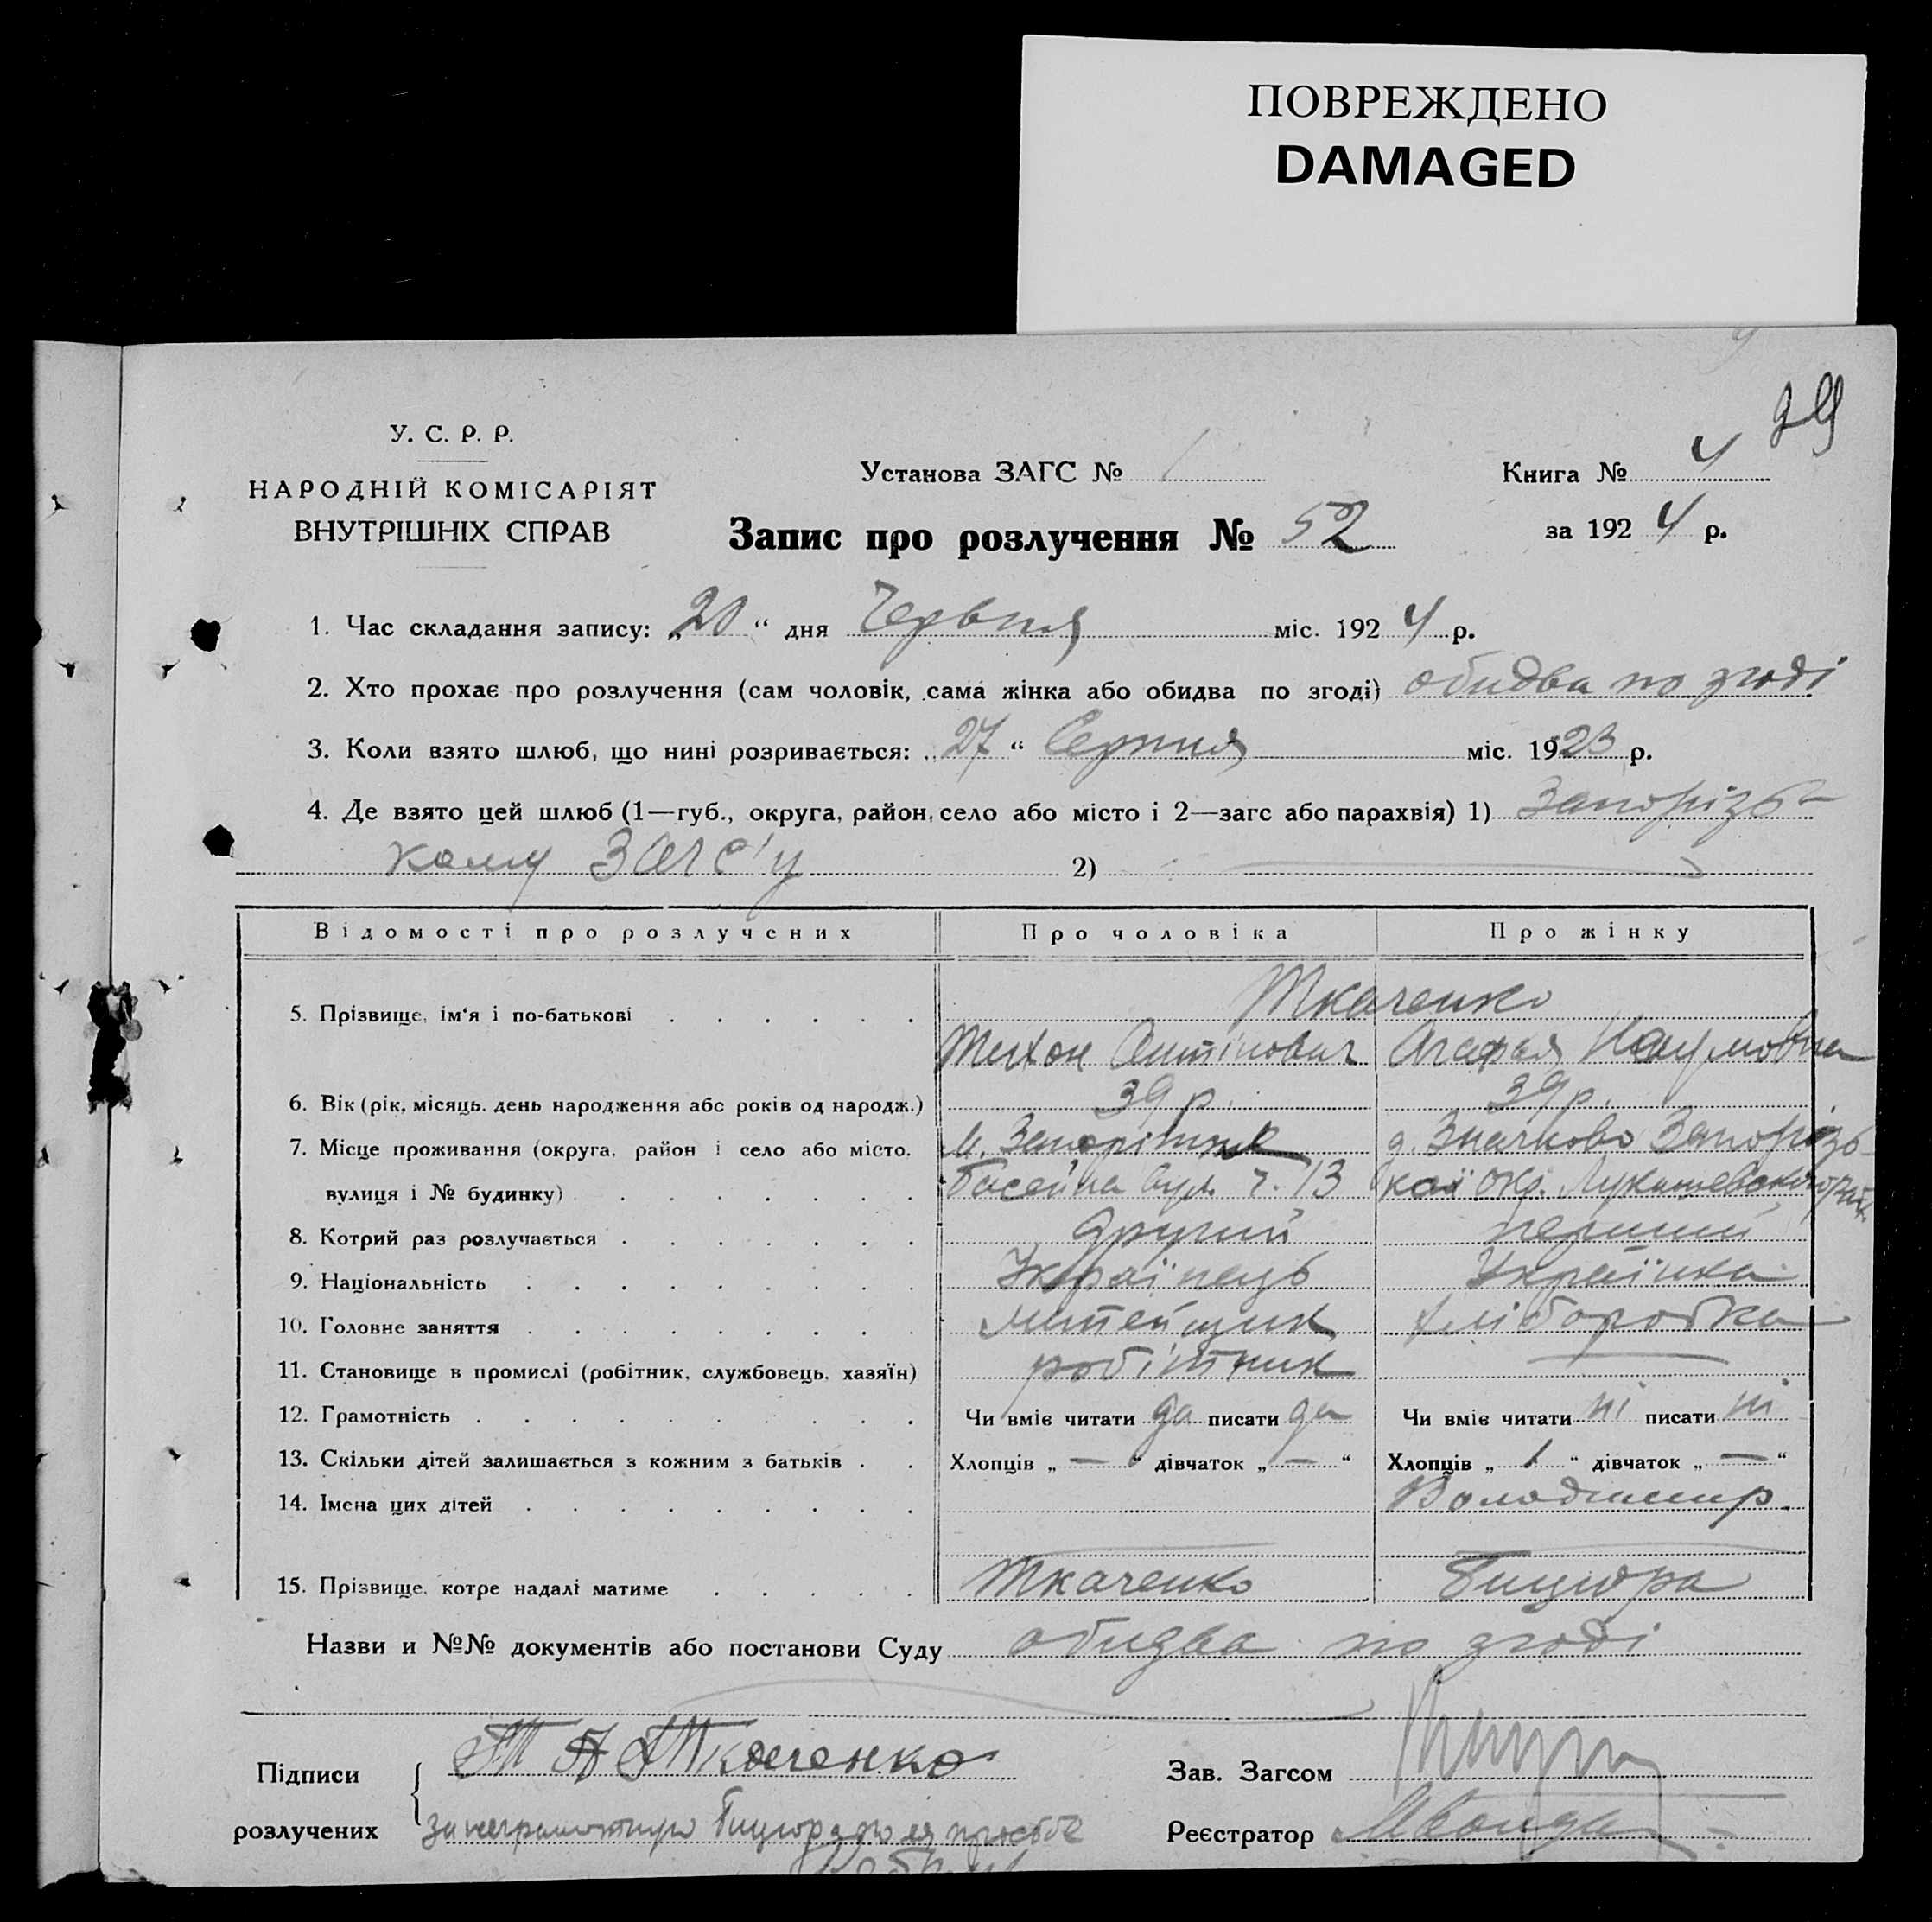 ПОВРЕЖДЕНО
DAMAGED
У. С. Р. Р.
НАРОДНІЙ КОМІСАРІЯТ
ВНУТРІШНІХ СПРАВ
Установа ЗАГС № 1
Книга № 4
Запис про розлучення № 52
за 1924 р.
1. Час складання запису: „20“ дня Червня міс. 1924 р.
2. Хто прохає про розлучення (сам чоловік, сама жінка або обидва по згоді) обидва по згоді
3. Коли взято шлюб, що нині розривається: „27“ Серпня міс. 1923 р.
4. Де взято цей шлюб (1—губ., округа, район, село або місто і 2—загс або парахвія) 1) Запорізь-
кому ЗАГС'у 2)
Відомості про розлучених Про чоловіка Про жінку
Ткаченко
5. Прізвище, ім‘я і по-батькові
Тихон Антінович Агафья Наумовна
6. Вік (рік, місяць, день народження або років од народж.) 39 р. 39 р.
7. Місце проживання (округа, район і село або місто, м. Запоріжжя д. Значково Запорізь-
вулиця і № будинку) Басейна вул. ч. 13 кої окр. Лукашевського рай.
8. Котрий раз розлучається другий перший
9. Національність Українець Українка
10. Головне заняття литейщик хліборобка
11. Становище в промислі (робітник, службовець, хазяїн) робітник —
12. Грамотність Чи вміє читати да писати да Чи вміє читати ні писати ні
13. Скільки дітей залишається з кожним з батьків Хлопців „ — “ дівчаток „ — “ Хлопців „ 1 “ дівчаток „ — “
14. Імена цих дітей Володимир.
15. Прізвище, котре надалі матиме Ткаченко Бицюра
Назви и №№ документів або постанови Суду обидва по згоді
Підписи Т А Ткаченко Зав. Загсом
розлучених за неграмотную Бицюра по ея просьбе Реєстратор